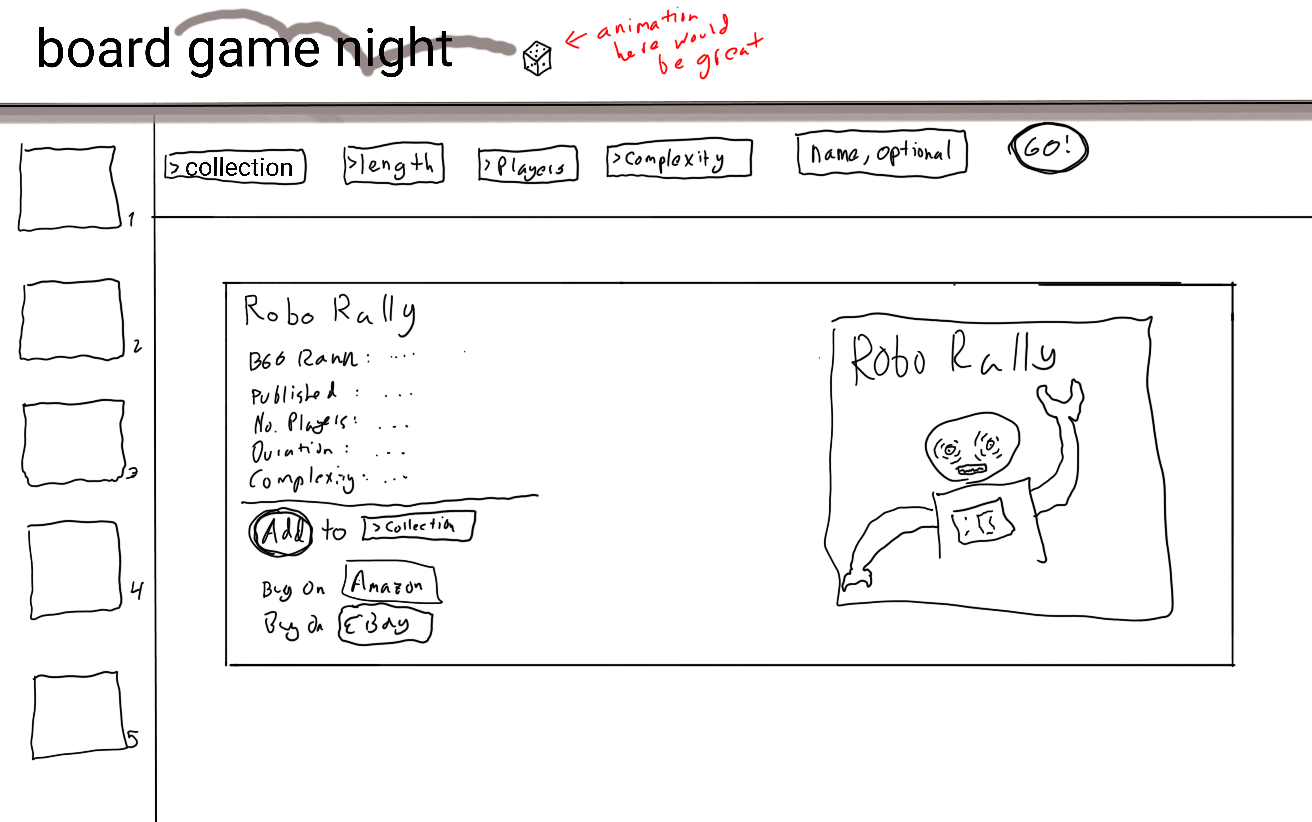 board game night
← animation
here would
be great
1
> collection
> length
> Players
> Complexity
name, optional
GO!
2
3
4
5
Robo Rally
BGG Rank: ....
Published : ...
No. Players: ...
Duration : ...
Complexity: ...
Add to > Collection
Buy On Amazon
Buy On EBay
Robo Rally